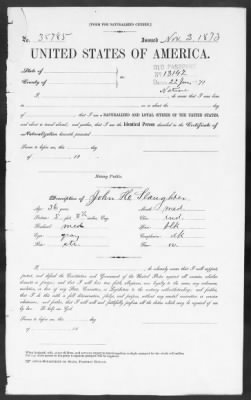 [FORM FOR NATURALIZED CITIZEN.]
No. 35785 Issued Nov 3, 1873
UNITED STATES OF AMERICA.
State of
County of
OLD PASSPORT
No 13142
Date 22 June 71
Native
I, do swear that I was born
in on or about the day
of , that I am a NATURALIZED AND LOYAL CITIZEN OF THE UNITED STATES,
and about to travel abroad; and further, that I am the Identical Person described in the Certificate of
Naturalization herewith presented.
Sworn to before me, this day
of 18
Notary Public.
Description of John Slaughter
Age: 36 years Mouth: med
Stature: 5 feet inches, Eng. Chin: ind
Forehead: med Hair: blk
Eyes: gray Complexion: dk
Nose: str Face:
I, do solemnly swear that I will support,
protect, and defend the Constitution and Government of the United States against all enemies, whether
domestic or foreign; and that I will bear true faith, allegiance, and loyalty to the same, any ordinance,
resolution, or law of any State, Convention, or Legislature to the contrary notwithstanding; and further,
that I do this with a full determination, pledge, and purpose, without any mental reservation or evasion
whatsoever; and further, that I will well and faithfully perform all the duties which may be required of me
by law: So help me God.
Sworn to before me, this day
of 18